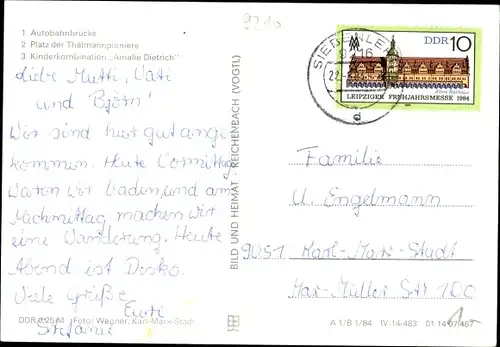 9210
1 Autobahnbrücke
2 Platz der Thälmannpioniere
3 Kinderkombination „Amalie Dietrich"
Liebe Mutti, Vati
und Björn!
Wir sind hier gut ange
kommen. Heute Vormittag
waren wir baden, und am
Nachmittag machen wir
eine Wanderung. Heute
Abend ist Disko.
Viele Grüße
Eure
Stefanie
DDR 0,25 M Foto: Wegner, Karl-Marx-Stadt
BILD UND HEIMAT · REICHENBACH (VOGTL)
SIEBENLEHN
9216
d
DDR 10
Altes Rathaus
LEIPZIGER FRÜHJAHRSMESSE 1984
Familie
U. Engelmann
9051 Karl-Marx-Stadt
Max-Müller Str 100
A 1/B 1/84 IV-14-483 01 14 07 467